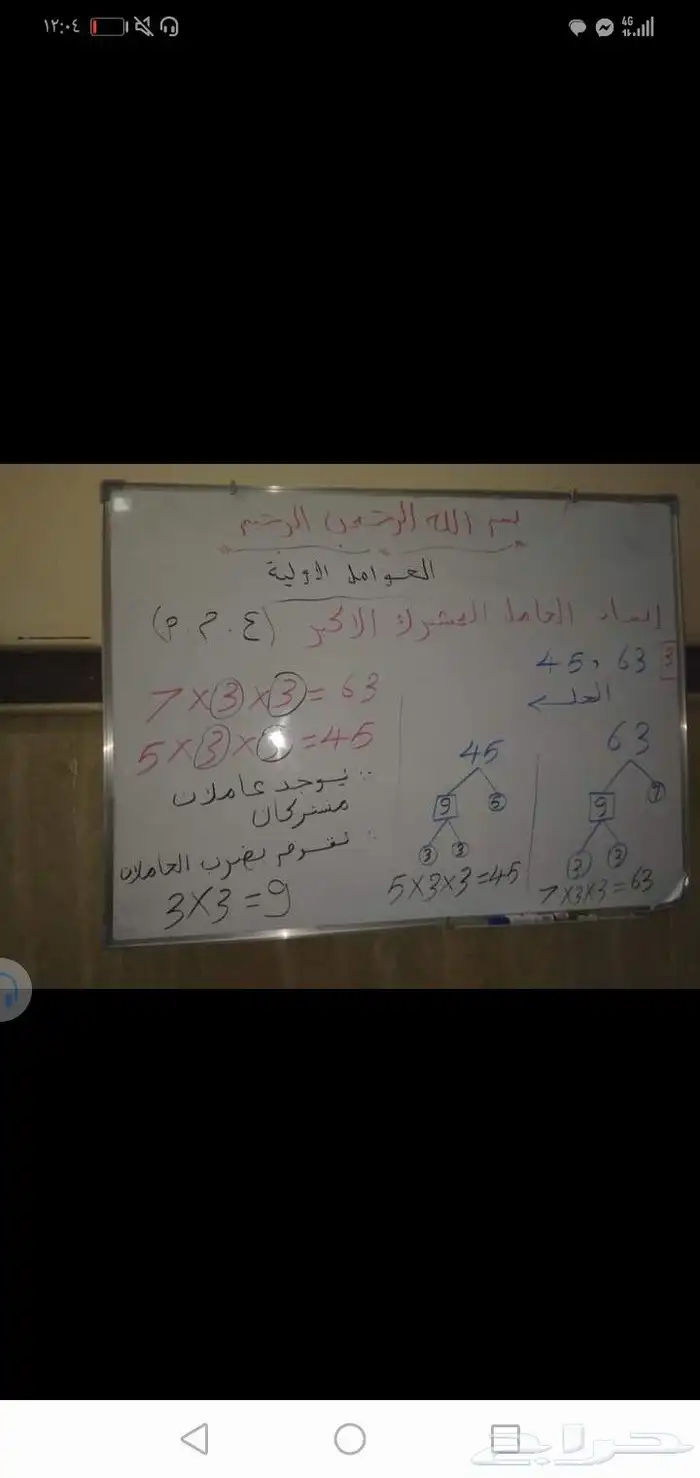 ١٢:٠٤
4G
بسم الله الرحمن الرحيم
العوامل الاولية
إيجاد العامل المشترك الاكبر (ع.م.م)
3 63 , 45
الحل
63
9 7
3 3
7×3×3=63
45
9 5
3 3
5×3×3=45
7×3×3=63
5×3×3=45
∴ يوجد عاملان
مشتركان
∴ نقوم بضرب العاملان
3×3=9
حراج